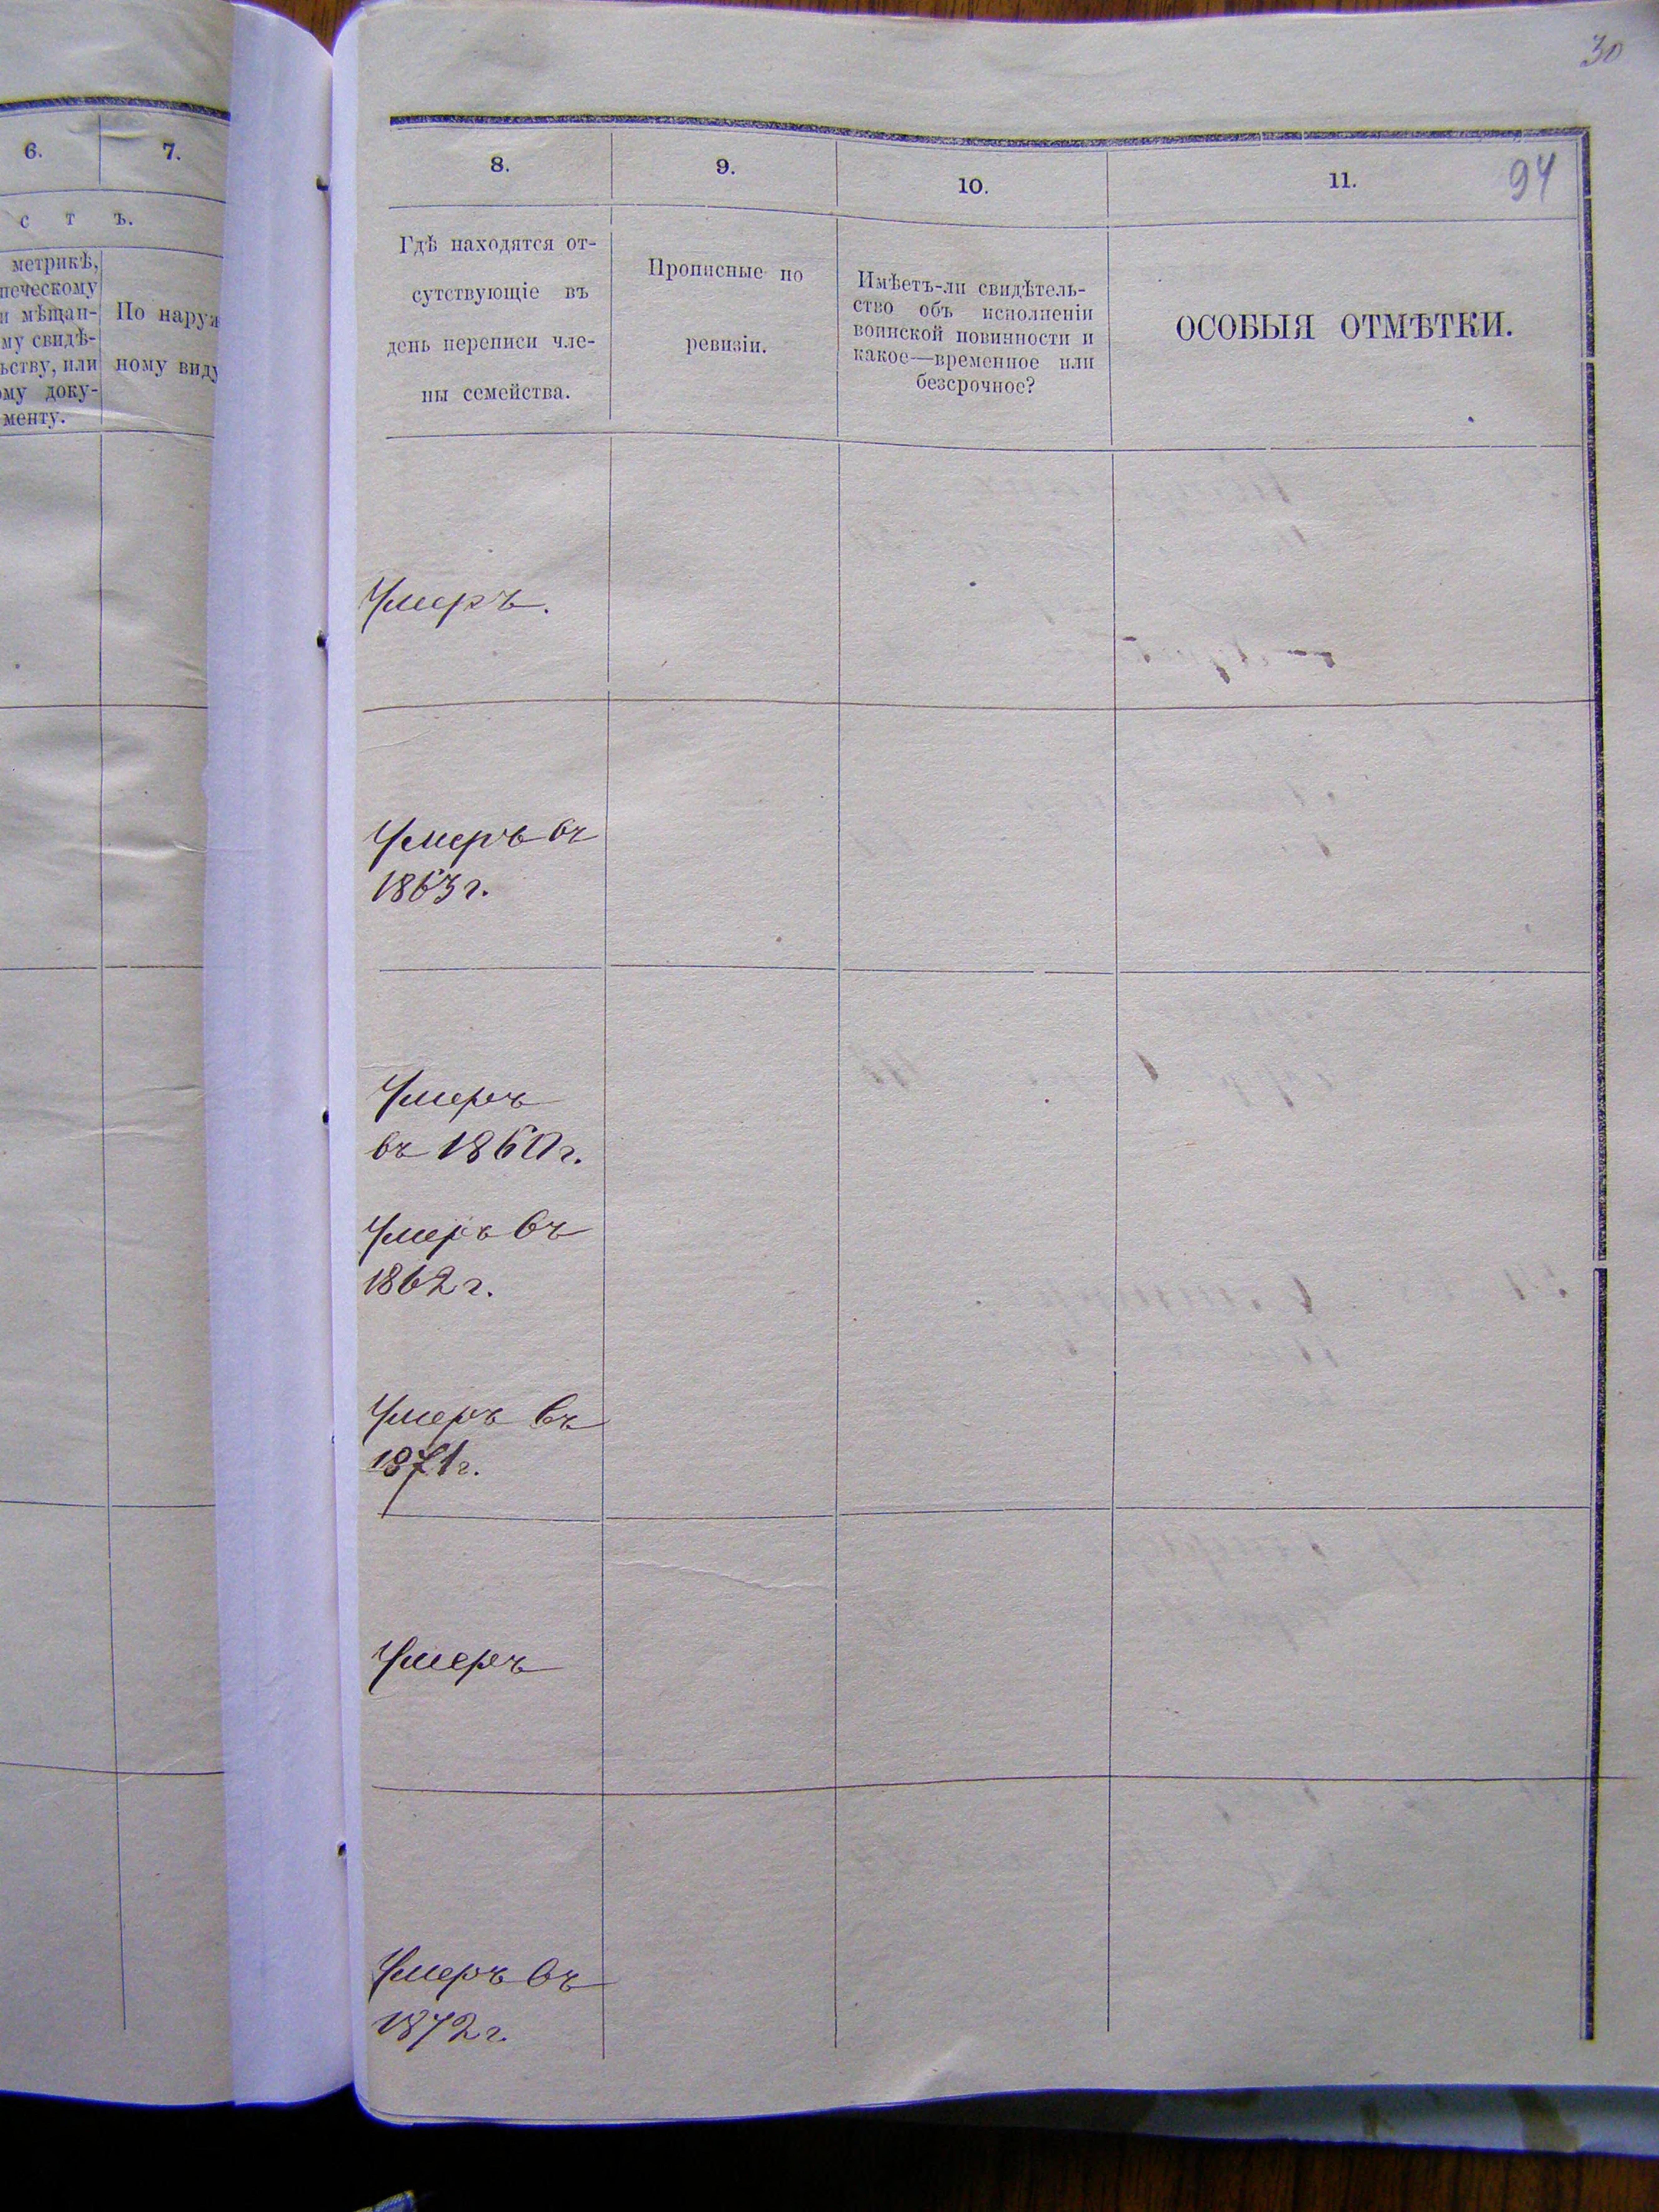 30
94
6. 7.
с т ъ.
метрикѣ,
мѣщан-
му свидѣ-
или
ому доку-
менту.
По наруж
ному виду
8. 9. 10. 11.
Гдѣ находятся от-
сутствующіе въ
день переписи чле-
ны семейства.
Прописные по
ревизіи.
Имѣетъ-ли свидѣтель-
ство объ исполненіи
воинской повинности и
какое—временное или
безсрочное?
ОСОБЫЯ ОТМѢТКИ.
Умеръ.
Умеръ въ
1863 г.
Умеръ
въ 1860 г.
Умеръ въ
1862 г.
Умеръ въ
1871 г.
Умеръ
Умеръ въ
1872 г.